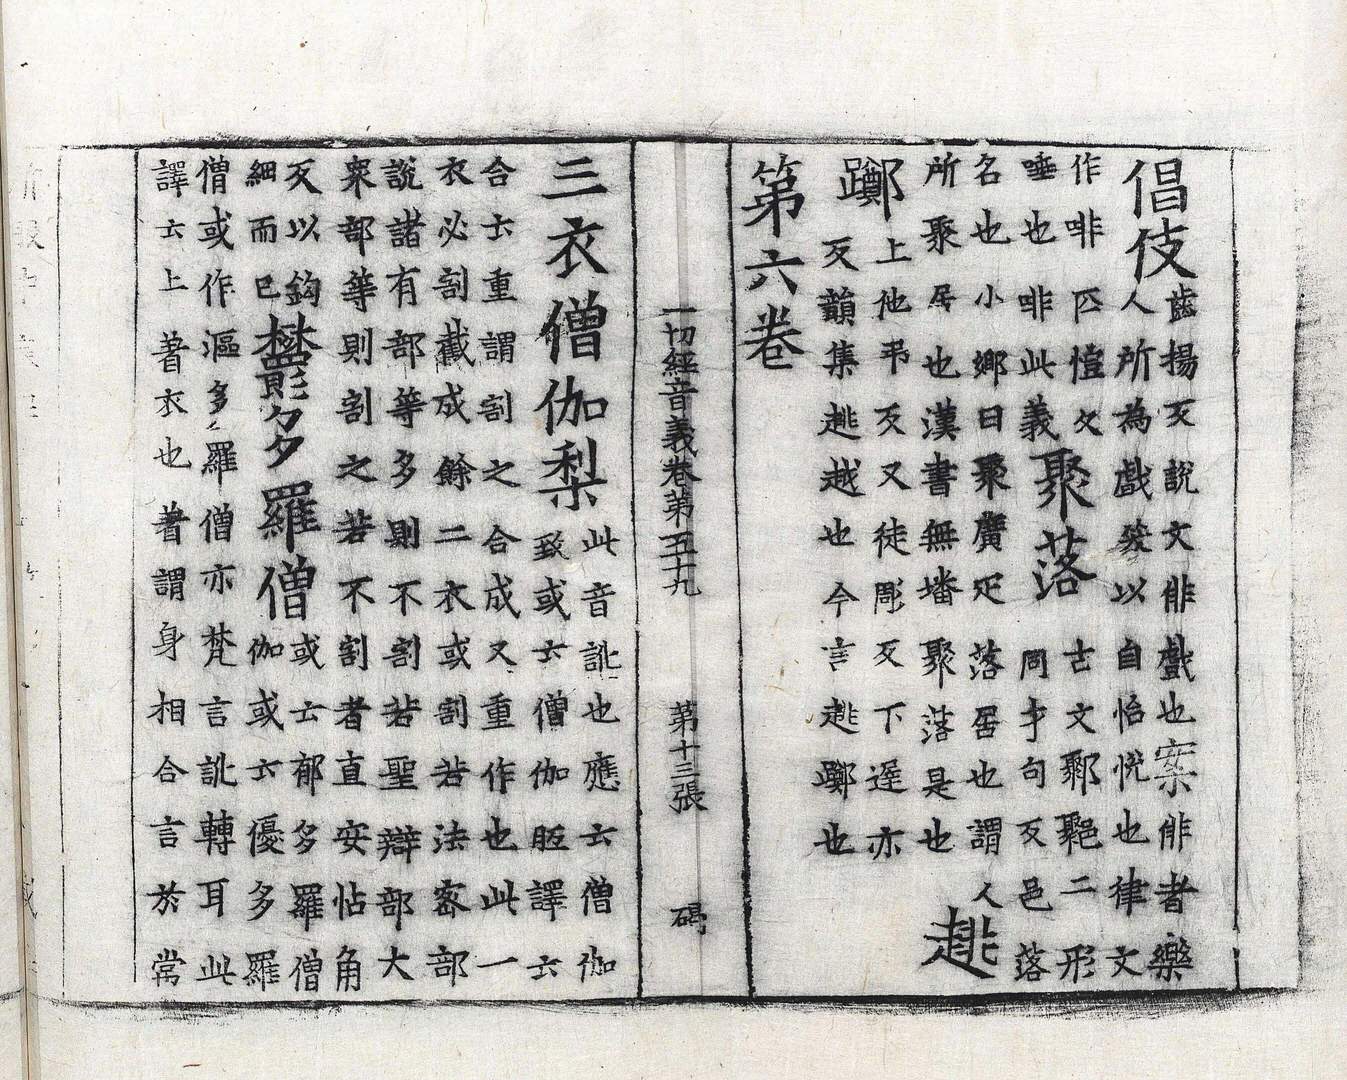 倡伎
齒揚反說文俳戲也案俳者樂
人所為戲發以自怡悅也律文
作啡匹愷反
唾也啡此義
聚落
古文鄹二形
同才句反邑落
名也小鄉曰聚廣疋落居也謂人
所聚居也漢書無墦聚落是也
趒
躑
上他弔反又徒彫反下遲亦
反韻集趒越也今言趒躑也
第六卷
一切經音義卷第五十九 第十三張 碣
三衣僧伽梨
此音訛也應云僧伽
致或云僧伽胝譯云
合云重謂割之合成又重作也此一
衣必割截成餘二衣或割若法密部
說諸有部等多則不割若聖辯部大
衆部等則割之若不割者直安帖角
反以鉤
細而已
鬱多羅僧
或云郁多羅僧
伽或云優多羅
僧或作漚多羅僧亦梵言訛轉耳此
譯云上著衣也著謂身相合言於常